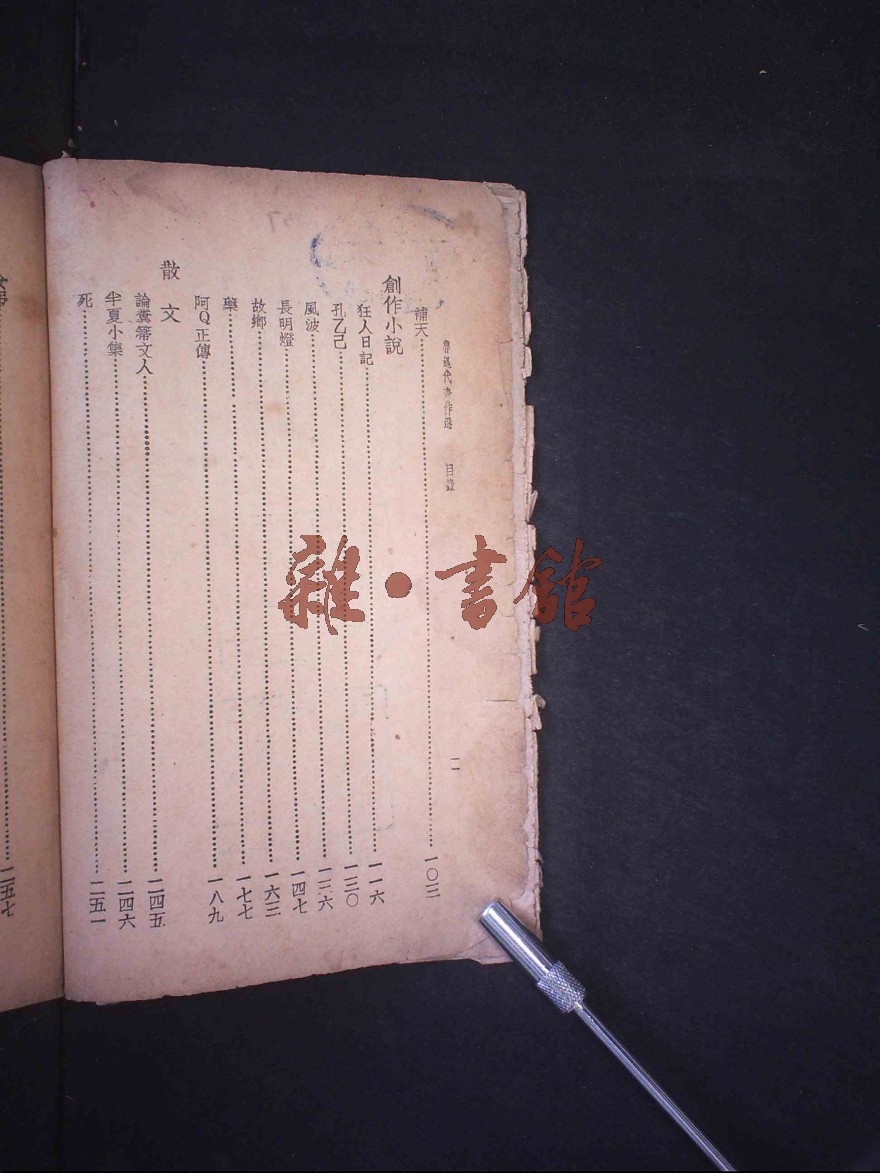 魯迅代表作選 目錄 二
補天 一〇三
創作小說
狂人日記 一一六
孔乙己 一三〇
風波 一三六
長明燈 一四七
故鄉 一六三
藥 一七七
阿Q正傳 一八九
散文
論糞箒文人 二四五
半夏小集 二四六
死 二五一
二五七
雜·書館